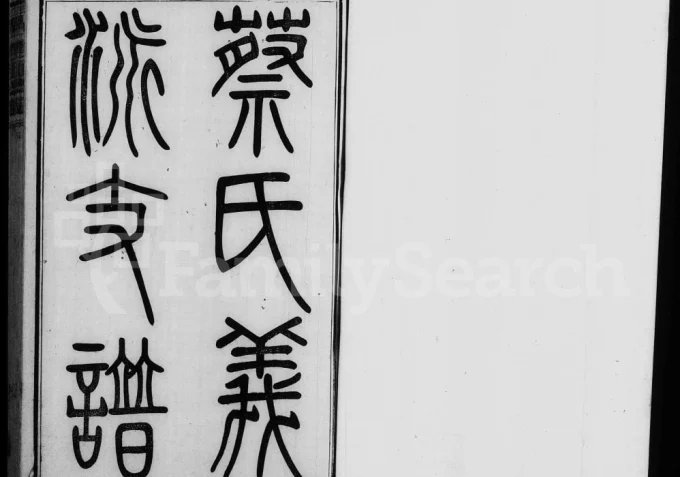 蔡氏義
派支譜
FamilySearch